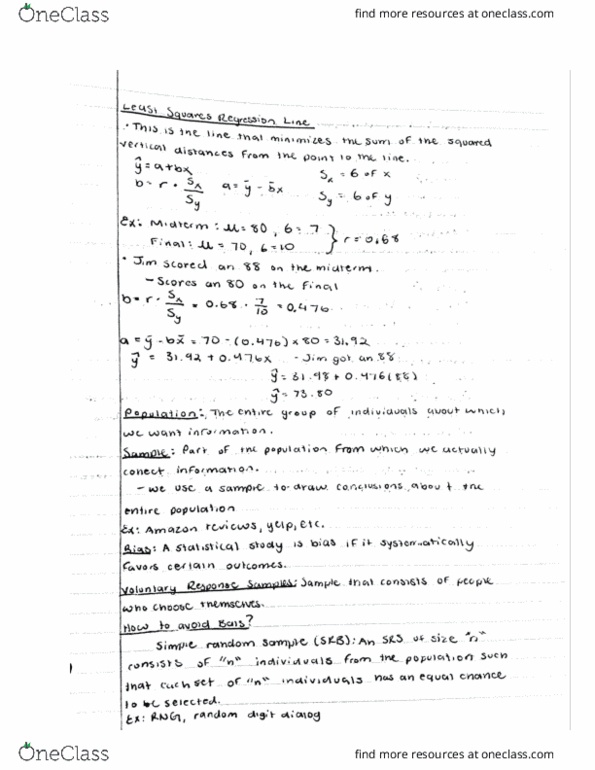 OneClass
find more resources at oneclass.com
Least Squares Regression Line
• This is the line that minimizes the sum of the squared
vertical distances from the point to the line.
ŷ = a+bx
Sₓ = 6 of x
b = r • Sₓ/Sy a = ȳ - b̄x
Sy = 6 of y
Ex: Midterm : μ = 80, 6 = 7
Final : μ = 70, 6 = 10 } r = 0.68
• Jim scored an 88 on the midterm.
- Scores an 80 on the final
b = r • Sₓ/Sy = 0.68 • 7/10 = 0.476
a = ȳ - bx̄ = 70 - (0.476) x 80 = 31.92
ŷ = 31.92 + 0.476x - Jim got an 88
ŷ = 31.98 + 0.476(88)
ŷ = 73.80
Population: The entire group of individuals about which,
we want information.
Sample: Part of the population from which we actually
collect information.
- we use a sample to draw conclusions about the
entire population
Ex: Amazon reviews, yelp, etc.
Bias: A statistical study is bias if it systematically
favors certain outcomes.
Voluntary Response Samples: Sample that consists of people
who choose themselves.
How to avoid Bais?
Simple random sample (SRB): An SRS of size "n"
consists of "n" individuals from the population such
that each set of "n" individuals has an equal chance
to be selected.
Ex: RNG, random digit dialog
OneClass
find more resources at oneclass.com